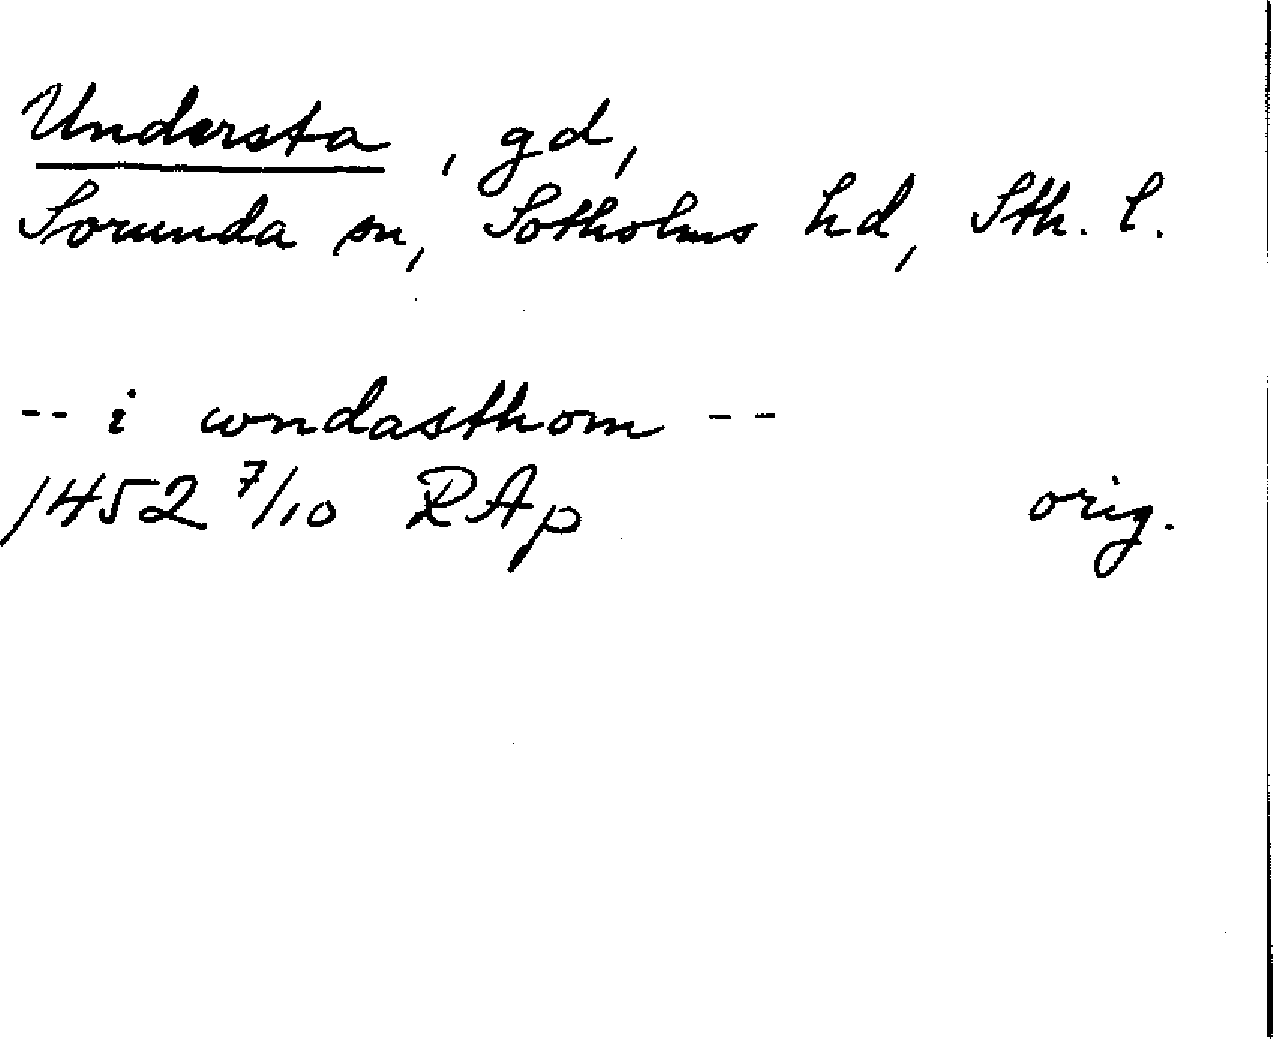 Understa, gd,
Sorunda sn, Sotholms hd, Sth. l.
-- i wndasthom --
1452 7/10 RAp orig.